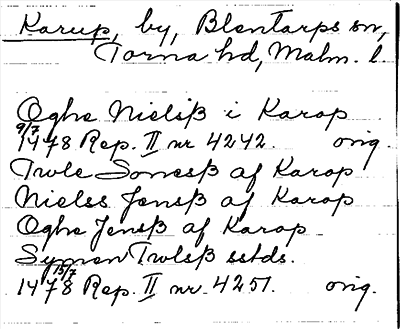 Karup, by, Blentarps sn,
Torna hd, Malm. l
Oghe Nielsß i Karop
9/7
1478 Rep. II nr 4242. orig.
Twle Sonesß af Karop
Nielss Jensß af Karop
Oghe Jensß af Karop
Symen Twlsß sstds.
15/7
1478 Rep. II nr. 4251. orig.